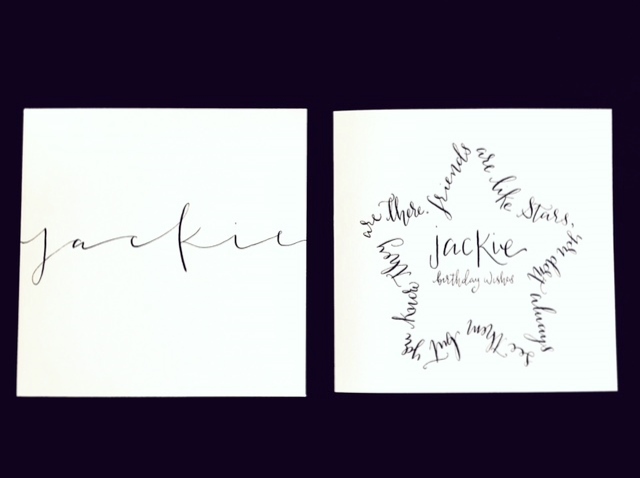 jackie
friends are like stars. you don't always see them but you know they are there.
jackie
birthday wishes